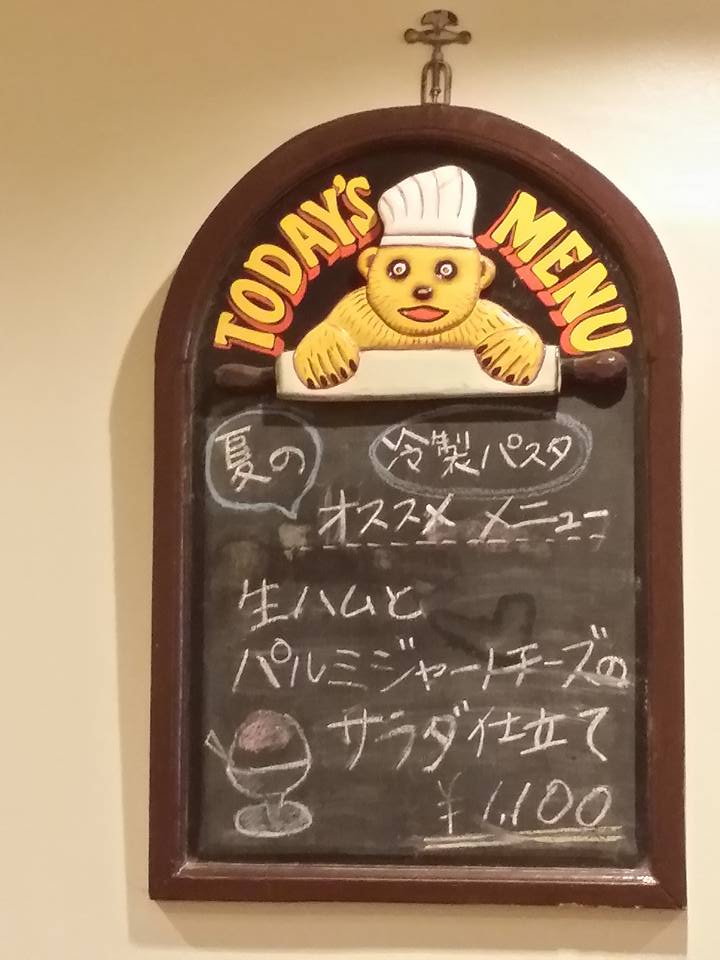 TODAY'S MENU
夏の 冷製パスタ
オススメ メニュー
生ハムと
パルミジャートチーズの
サラダ仕立て
¥1,100